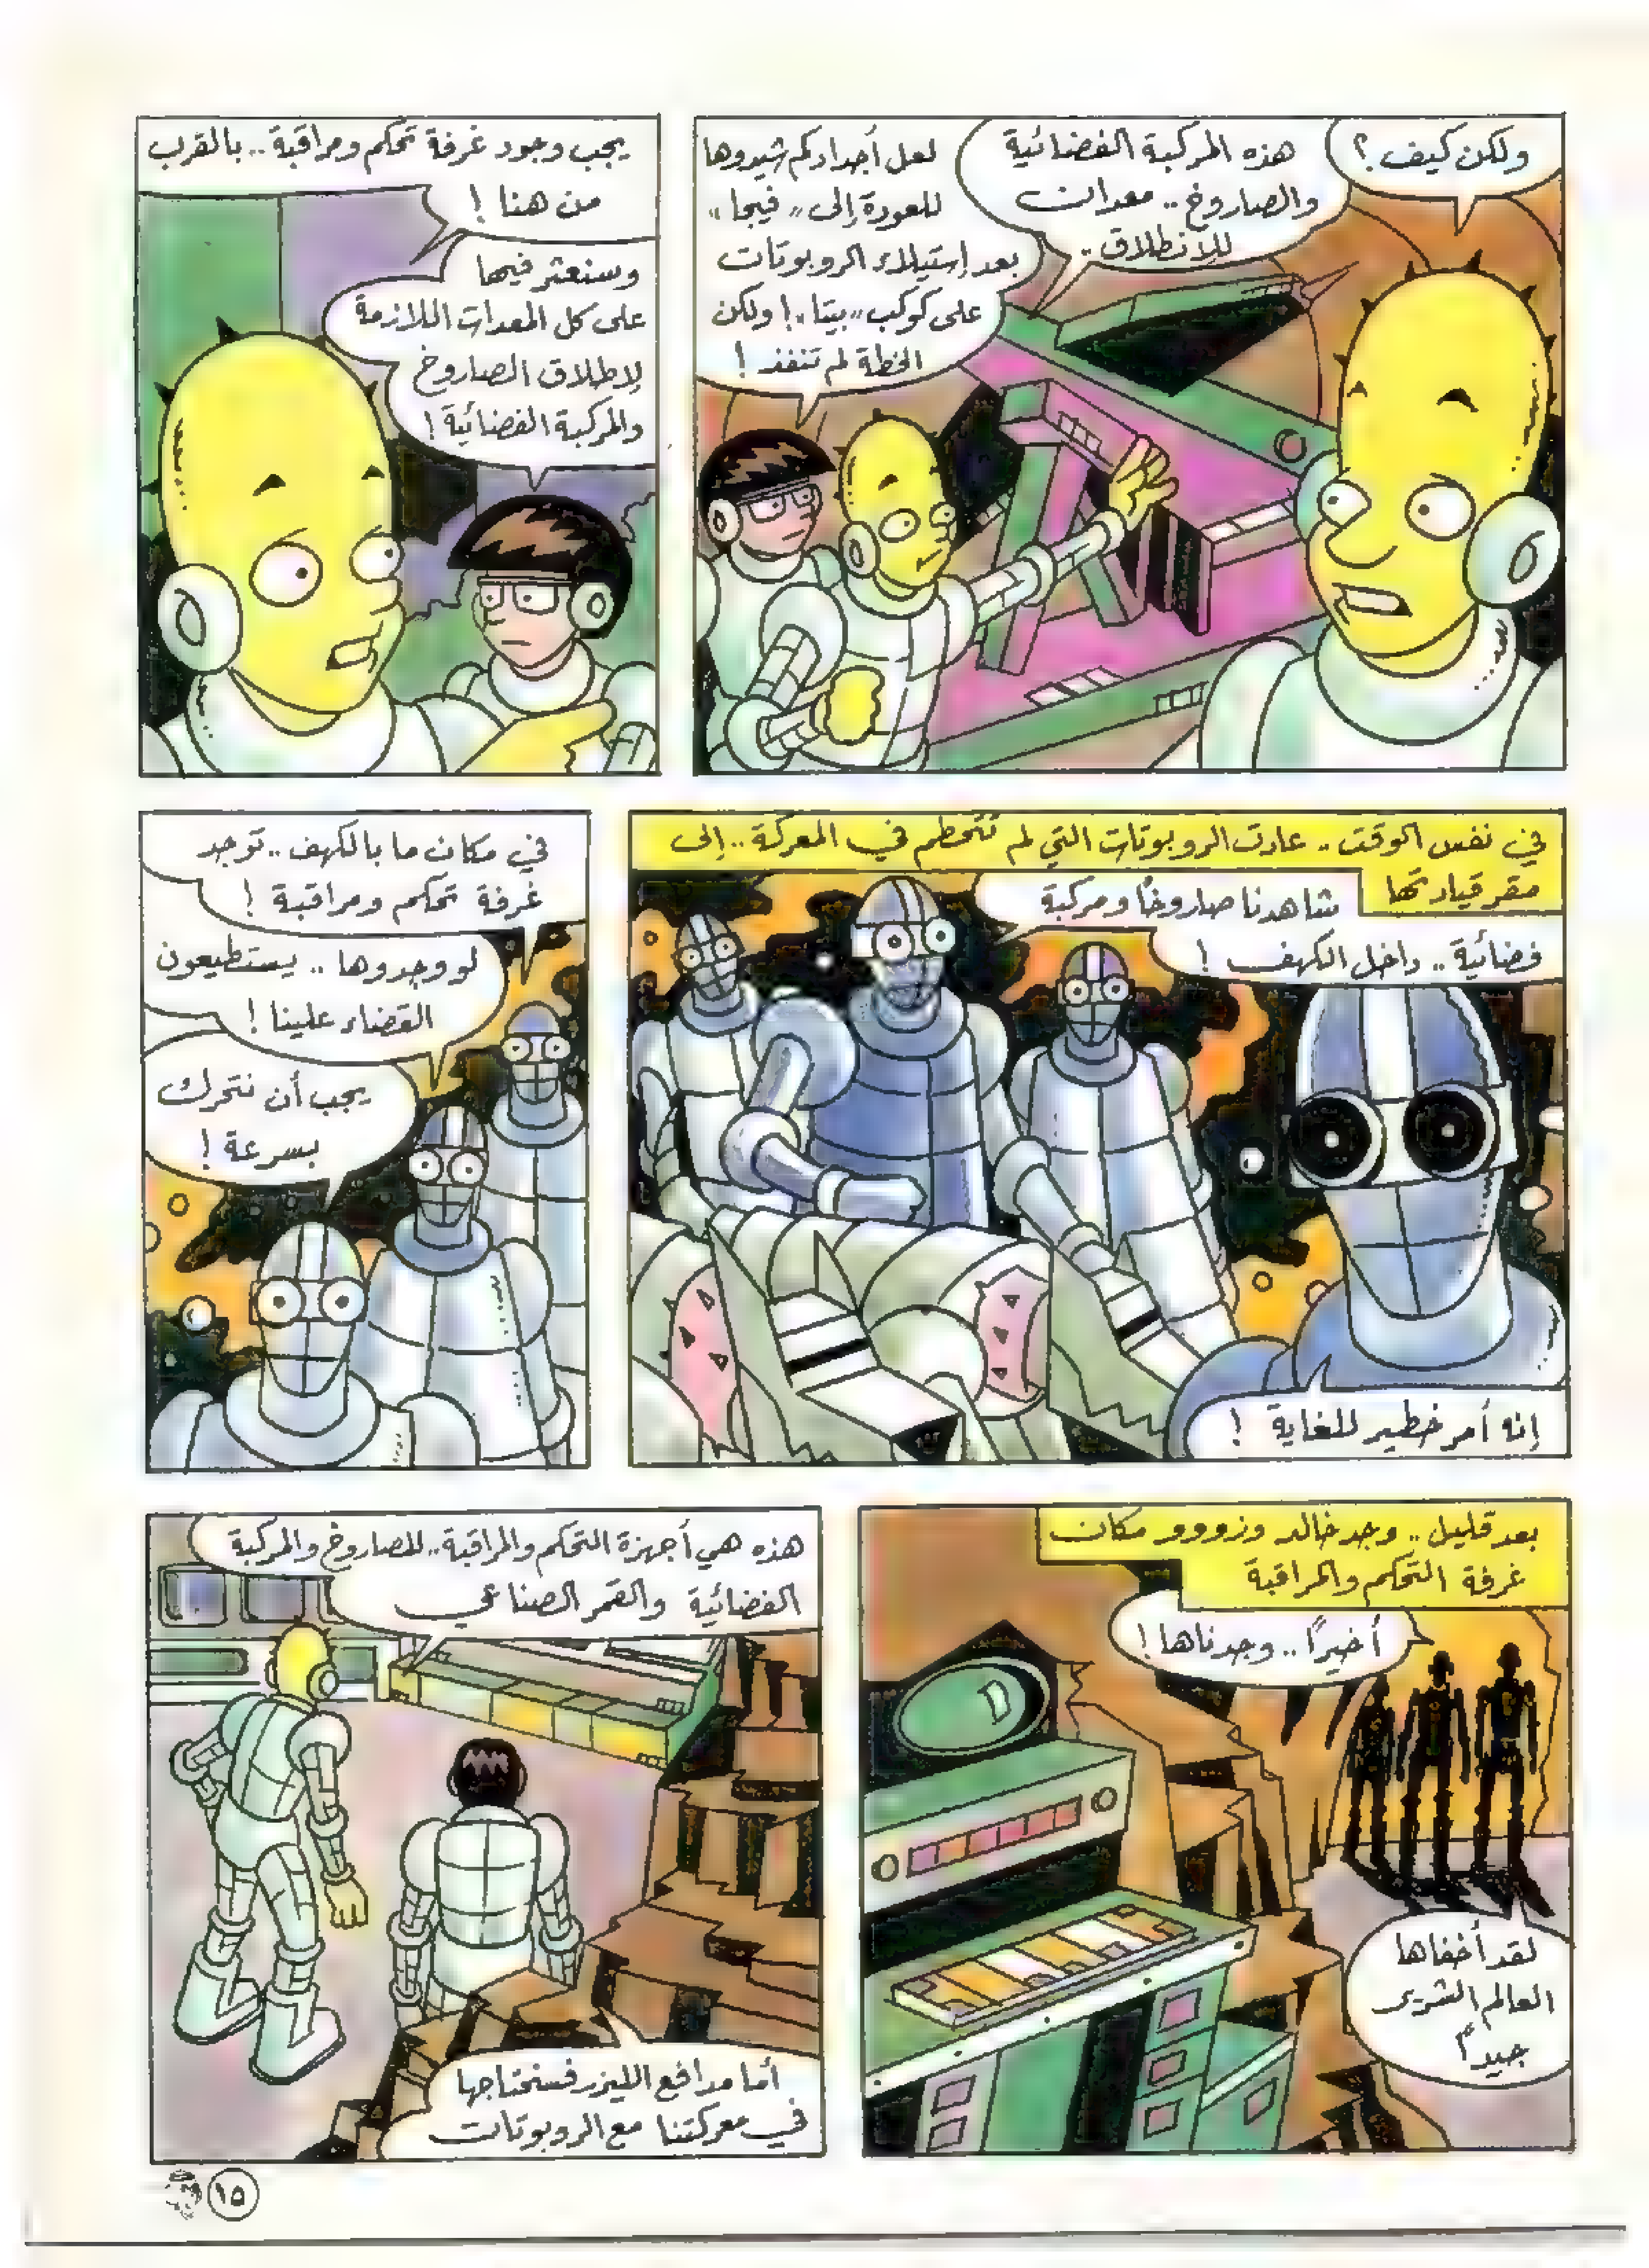 ولكن كيف ؟
هذه المركبة الفضائية
والصاروخ .. معدات
للإنطلاق ..
لعل أجدادكم شيدوها
للعودة إلى « فيجا »
بعد إستيلاء الروبوتات
على كوكب « بيتا » ! ولكن
الخطة لم تنفذ !
يجب وجود غرفة تحكم ومراقبة .. بالقرب
من هنا !
وسنعثر فيها
على كل المعدات اللازمة
لإطلاق الصاروخ
والمركبة الفضائية !
في نفس الوقت .. عادت الروبوتات التي لم تتحطم في المعركة .. إلى
مقر قيادتها
شاهدنا صاروخًا ومركبة
فضائية .. داخل الكهف !
إنه أمر خطير للغاية !
في مكان ما بالكهف .. توجد
غرفة تحكم ومراقبة !
لو وجدوها .. يستطيعون
القضاء علينا !
يجب أن نتحرك
بسرعة !
بعد قليل .. وجد خالد وزووو مكان
غرفة التحكم والمراقبة
أخيرًا .. وجدناها !
لقد أخفاها
العالم الشرير
جيدًا
هذه هي أجهزة التحكم والمراقبة .. للصاروخ والمركبة
الفضائية والقمر الصناعي
أما مدافع الليزر فسنحتاجها
في معركتنا مع الروبوتات
١٥